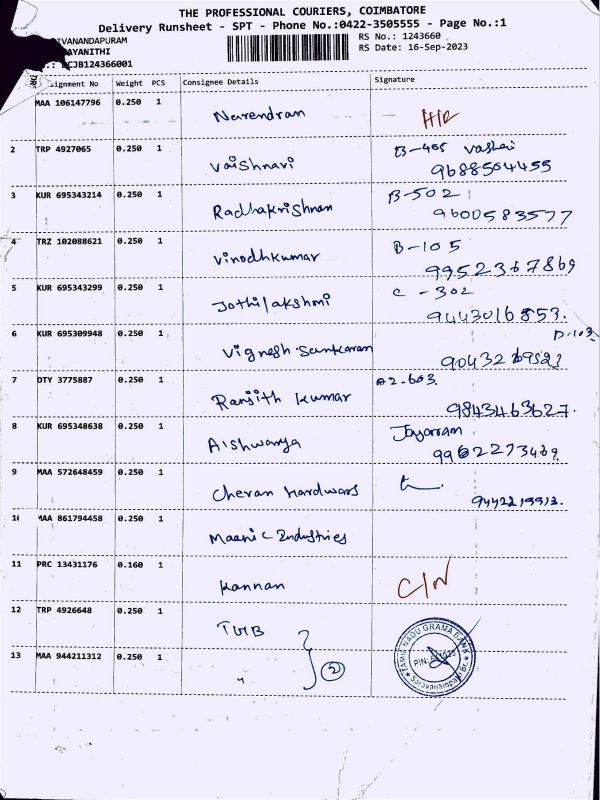 THE PROFESSIONAL COURIERS, COIMBATORE
Delivery Runsheet - SPT - Phone No.:0422-3505555 - Page No.:1
IVANANDAPURAM
AYANITHI
.: CJB124366001
RS No.: 1243660
RS Date: 16-Sep-2023
signment No Weight PCS Consignee Details Signature
MAA 106147796 0.250 1 Narendran H/R
2 TRP 4927065 0.250 1 Vaishnavi B-405 Vashai
9688504455
3 KUR 695343214 0.250 1 Radhakrishnan B-502
9600583577
4 TRZ 102088621 0.250 1 Vinodhkumar B-105
9952367869
5 KUR 695343299 0.250 1 Jothilakshmi C-302
9443016853.
6 KUR 695309948 0.250 1 Vignesh Sankaram D.103
9043269523
7 OTY 3775887 0.250 1 Ranjith Kumar A2-603.
9843463627.
8 KUR 695348638 0.250 1 Aishwarya Jayarram
9962273469
9 MAA 572648459 0.250 1 Cheran Hardwars
10 MAA 861794458 0.250 1 Maani C Industries
11 PRC 13431176 0.160 1 Kannan C/N
12 TRP 4926648 0.250 1 TMB
13 MAA 944211312 0.250 1 " 2
TAMIL NADU GRAMA BANK
PIN
Saravanampatti Br.